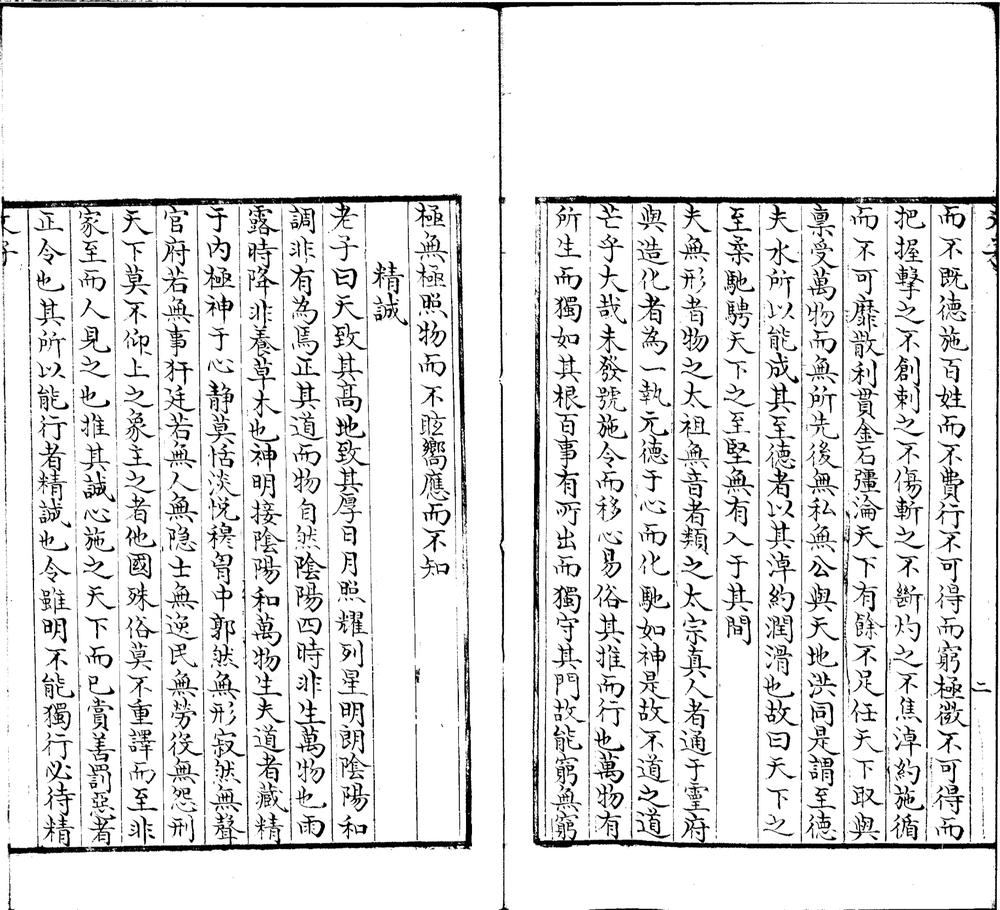 二
而不既德施百姓而不費行不可得而窮極微不可得而
把握擊之不創刺之不傷斬之不斷灼之不焦淖約施循
而不可靡散利貫金石彊淪天下有餘不足任天下取與
稟受萬物而無所先後無私無公與天地洪同是謂至德
夫水所以能成其至德者以其淖約潤滑也故曰天下之
至柔馳騁天下之至堅無有入于其間
夫無形者物之太祖無音者類之太宗真人者通于靈府
與造化者為一執元德于心而化馳如神是故不道之道
芒乎大哉未發號施令而移心易俗其推而行也萬物有
所生而獨如其根百事有所出而獨守其門故能窮無窮
極無極照物而不眩嚮應而不知
精誠
老子曰天致其高地致其厚日月照耀列星明朗陰陽和
調非有為焉正其道而物自然陰陽四時非生萬物也雨
露時降非養草木也神明接陰陽和萬物生夫道者藏精
于內極神于心靜莫恬淡悅穆胷中郭然無形寂然無聲
官府若無事犴廷若無人無隐士無逸民無勞役無怨刑
天下莫不仰上之象主之者他國殊俗莫不重譯而至非
家至而人見之也推其誠心施之天下而已賞善罰惡者
正令也其所以能行者精誠也令雖明不能獨行必待精